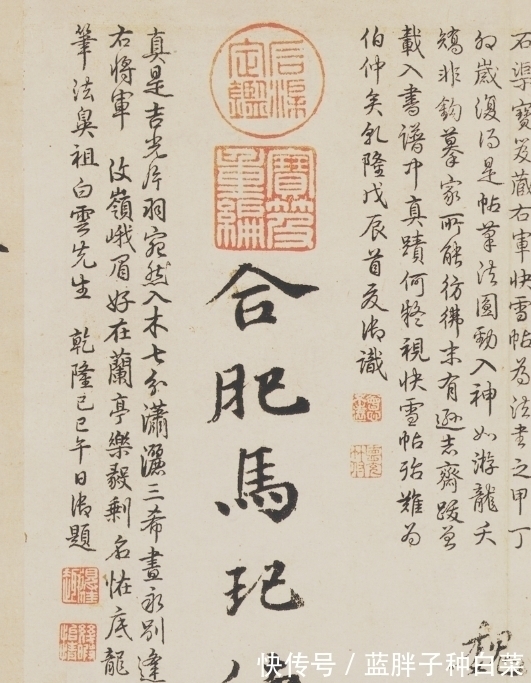 石渠寶笈藏右軍快雪帖為法書之甲丁
卯歲復得是帖筆法圓勁入神如游龍夭
矯非鉤摹家所能彷彿末有遜志齋跋曾
載入書譜中真蹟何疑視快雪帖殆難為
伯仲矣乾隆戊辰首夏御識
石渠定鑑
寶笈重編
合肥馬玘
真是吉光片羽宛然入木七分瀟灑三希晝永別
右將軍 汶嶺峨眉好在蘭亭樂毅剩名恠底龍
筆法鼻祖白雲先生 乾隆己巳午日御題
得佳趣
幾暇怡情
快传号 / 蓝胖子种白菜